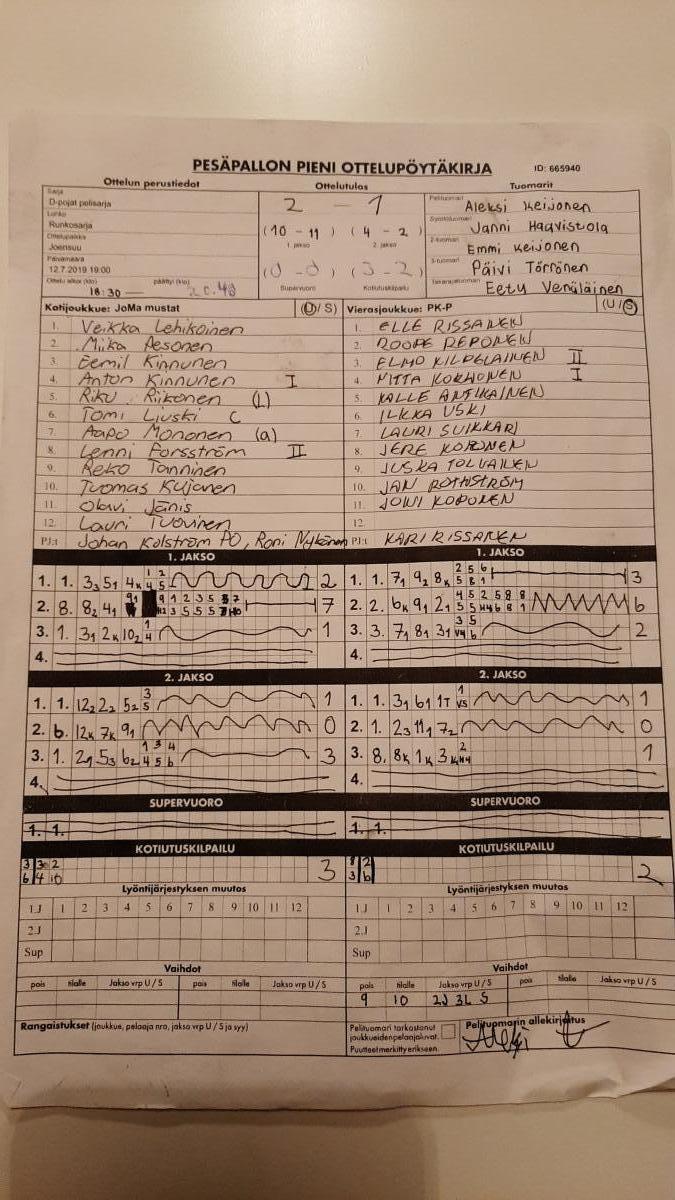 PESÄPALLON PIENI OTTELUPÖYTÄKIRJA ID: 665940
Ottelun perustiedot Ottelutulos Tuomarit
Sarja
D-pojat polisarja
Lohko
Runkosarja
Ottelupaikka
Joensuu
Päivämäärä
12.7.2019 19:00
Ottelu alkoi (klo) päättyi (klo)
18:30 — 20.49
2 — 1
(10 - 11) (4 - 2)
1. jakso 2. jakso
(0 - 0) (3 - 2)
Supervuoro Kotiutuskilpailu
Pelituomari Aleksi Keijonen
Syöttötuomari Janni Haavistola
2-tuomari Emmi Keijonen
3-tuomari Päivi Törrönen
Takarajatuomari Eetu Venäläinen
Kotijoukkue: JoMa mustat (U/S) Vierasjoukkue: PK-P (U/S)
1. Veikka Lehikoinen 1. ELLE RISSANEN
2. Miika Pesonen 2. ROOPE REPONEN
3. Eemil Kinnunen 3. ELMO KILPELÄINEN II
4. Anton Kinnunen I 4. MITTA KORHONEN I
5. Riku Riikonen (L) 5. KALLE ANTIKAINEN
6. Tomi Liuski C 6. ILKKA USKI
7. Aapo Mononen (a) 7. LAURI SUIKKARI
8. Lenni Forsström II 8. JERE KOPONEN
9. Reko Tanninen 9. JUSKA TOLVAINEN
10. Tuomas Kujanen 10. JAN ROTHSTRÖM
11. Olavi Jänis 11. JONI KOPONEN
12. Lauri Tuovinen 12.
PJ:t Johan Kolström PO, Roni Nykänen PJ:t KARI RISSANEN
1. JAKSO 1. JAKSO
1. 1. 3₃ 5₁ 4ₖ 2 1. 1. 7₁ 9₂ 8ₖ 3
2. 8. 8₂ 4₁ 7 2. 2. 6ₖ 9₁ 2₁ 6
3. 1. 3₁ 2ₖ 10₂ 1 3. 3. 7₁ 8₁ 3₁ 2
4. 4.
2. JAKSO 2. JAKSO
1. 1. 12₂ 2₂ 5₂ 1 1. 1. 3₁ 6₁ 1ₜ 1
2. 6. 12ₖ 7ₖ 9₁ 0 2. 1. 2₃ 11₁ 7₂ 0
3. 1. 2₁ 5₃ 6₂ 3 3. 8. 8ₖ 1ₖ 3ₖ 1
4. 4.
SUPERVUORO SUPERVUORO
1. 1. 1. 1.
KOTIUTUSKILPAILU KOTIUTUSKILPAILU
3 2
Lyöntijärjestyksen muutos Lyöntijärjestyksen muutos
1.J 1 2 3 4 5 6 7 8 9 10 11 12 1.J 1 2 3 4 5 6 7 8 9 10 11 12
2.J 2.J
Sup Sup
Vaihdot Vaihdot
pois tilalle Jakso vrp U / S pois tilalle Jakso vrp U / S pois tilalle Jakso vrp U / S pois tilalle Jakso vrp U / S
9 10 2J 3L S
Rangaistukset (joukkue, pelaaja nro, jakso vrp U / S ja syy)
Pelituomari tarkastanut
joukkueiden pelaajaluvat.
Puutteet merkitty erikseen.
Pelituomarin allekirjoitus